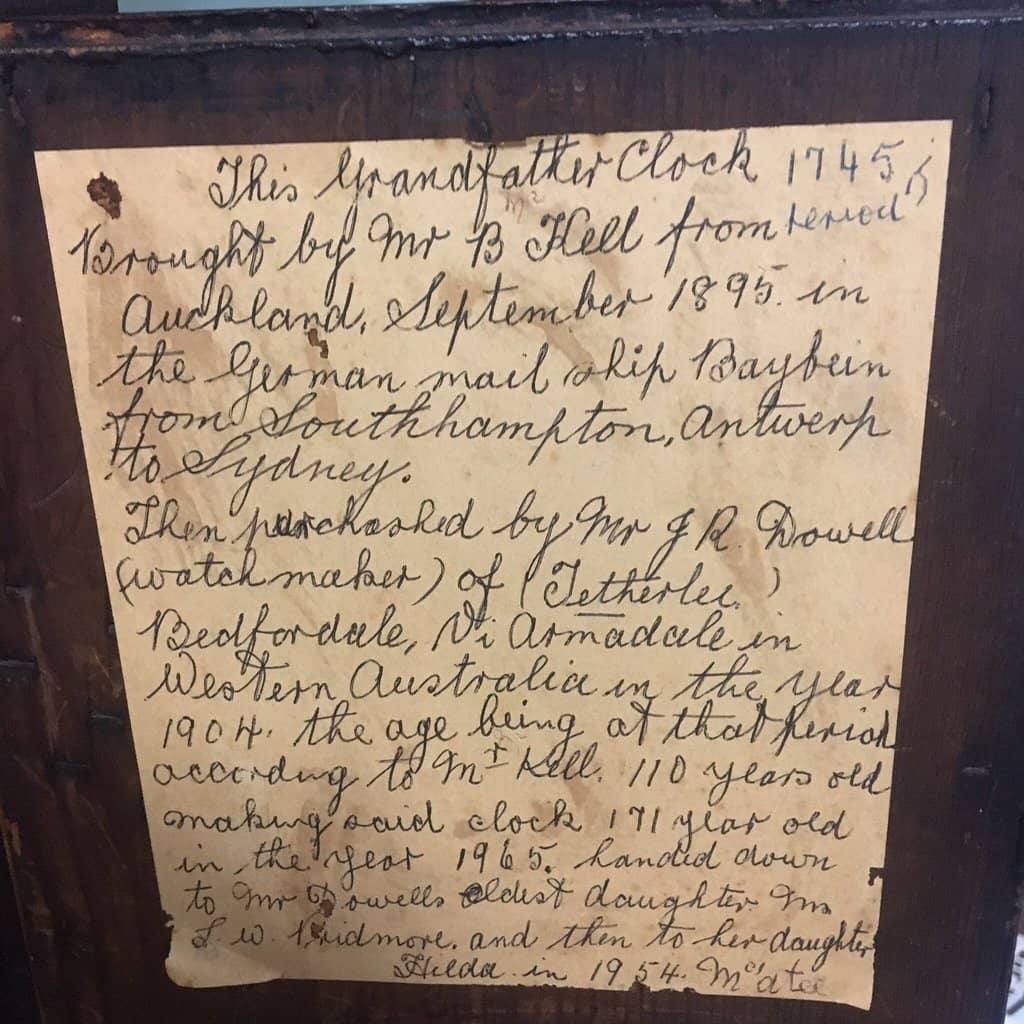 This Grandfather Clock 1745
Brought by Mr B Kell from period
Auckland, September 1895. in
the German mail ship Baybein
from Southhampton, Antwerp
to Sydney.
Then purchashed by Mr J R. Dowell
(watch maker) of (Tetherlee.)
Bedfordale, Vi Armadale in
Western Australia in the year
1904. the age being at that period
according to Mr Kell. 110 years old
making said clock 171 year old
in the year 1965. handed down
to Mr Dowells eldest daughter Mrs
L. W. Pridmore. and then to her daughter
Hilda in 1954. McAtee